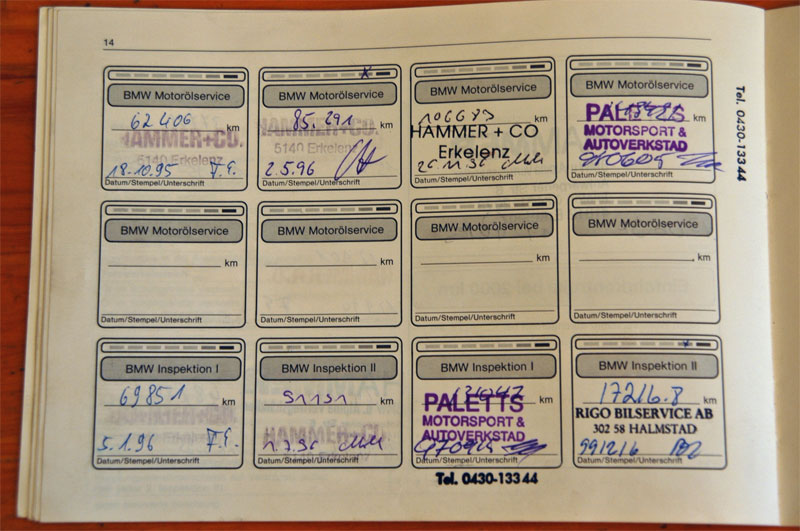 14
BMW Motorölservice
62406 km
HAMMER+CO.
5140 Erkelenz
18.10.95 V.E.
Datum/Stempel/Unterschrift
BMW Motorölservice
85.291 km
HAMMER+CO.
5140 Erkelenz
2.5.96
Datum/Stempel/Unterschrift
BMW Motorölservice
106673 km
HAMMER + CO
Erkelenz
Datum/Stempel/Unterschrift
BMW Motorölservice
km
PALETTS
MOTORSPORT &
AUTOVERKSTAD
970605
Datum/Stempel/Unterschrift
Tel. 0430-133 44
BMW Motorölservice
km
Datum/Stempel/Unterschrift
BMW Motorölservice
km
Datum/Stempel/Unterschrift
BMW Motorölservice
km
Datum/Stempel/Unterschrift
BMW Motorölservice
km
Datum/Stempel/Unterschrift
BMW Inspektion I
69851 km
HAMMER+CO.
5.1.96 V.E.
Datum/Stempel/Unterschrift
BMW Inspektion II
km
HAMMER+CO.
Datum/Stempel/Unterschrift
BMW Inspektion I
km
PALETTS
MOTORSPORT &
AUTOVERKSTAD
Datum/Stempel/Unterschrift
Tel. 0430-133 44
BMW Inspektion II
17216.8 km
RIGO BILSERVICE AB
302 58 HALMSTAD
991216
Datum/Stempel/Unterschrift